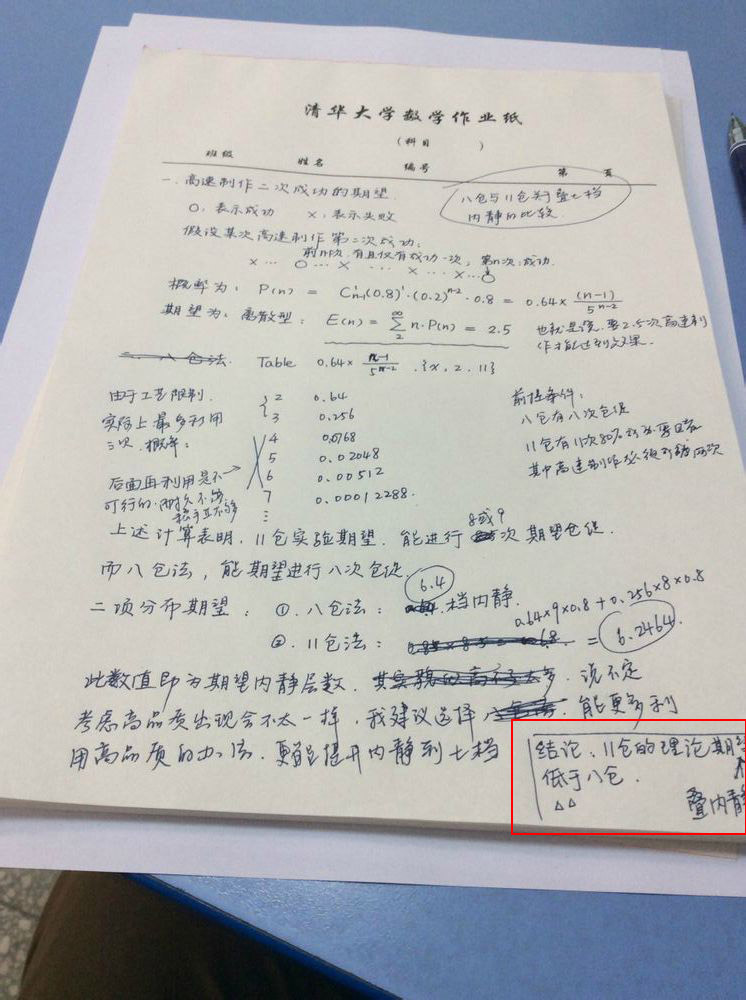 清华大学数学作业纸
(科目 )
班级 姓名 编号 第 页
一.高速制作二次成功的期望.
八仓与11仓关于叠七档
内静的比较.
O,表示成功 ×,表示失败
假设某次高速制作第二次成功:
前n次有且仅有成功一次,第n次:成功.
×… O…× … ×… ×…O
概率为: P(n) = C¹n-1(0.8)¹·(0.2)ⁿ⁻²·0.8 = 0.64×(n-1)/5ⁿ⁻²
期望为:离散型: E(n) = ∑∞2 n·P(n) = 2.5
也就是说,要2.5次高速制
作才能达到效果.
Table 0.64×n-1/5ⁿ⁻² .{x,2,11}
由于工艺限制.
实际上最多利用
三次.概率:
2 0.64
3 0.256
4 0.0768
5 0.02048
6 0.00512
7 0.00012288.
⋮
前提条件:
八仓有八次仓促
11仓有11次80%
其中高速制作必须两次
后面再利用是不
可行的.耐久不够
上述计算表明,11仓实验期望.能进行8或9次期望仓促.
而八仓法,能期望进行八次仓促.
二项分布期望: ①.八仓法: 6.4 档内静.
②.11仓法: 0.64×9×0.8+0.256×8×0.8
= 6.2464.
此数值即为期望内静层数. 说不定
考虑高品质出现会不太一样,我建议选择 能更多利
用高品质的办法.更能提升内静到七档
结论:11仓的理论期
低于八仓.
△△
叠内静